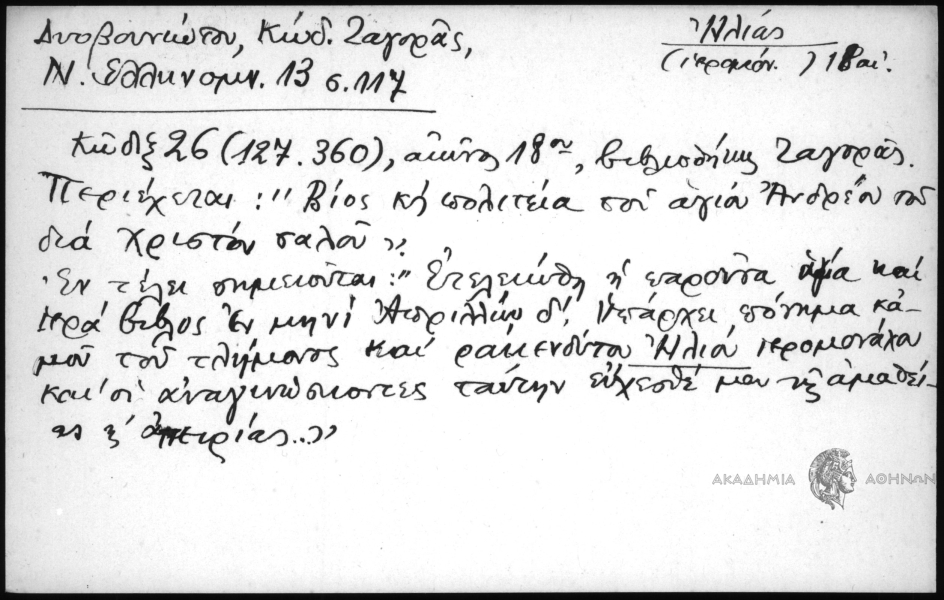 Δυοβουνιώτου, Κώδ. Ζαγορᾶς,
Ν. Ἑλληνομν. 13 σ. 117
Ἠλίας
(ἱερομόν. ) 18 αἰ.
Κῶδιξ 26 (127. 360), αἰῶνος 18ου, βιβλιοθήκης Ζαγορᾶς.
Περιέχεται: "Βίος κὴ πολιτεία τοῦ ἁγίου Ἀνδρέου τοῦ
διά Χριστόν σαλοῦ".
Ἐν τέλει σημειοῦται: "Ἐτελειώθη ἡ παροῦσα ἁγία καί
ἱερά βίβλος ἐν μηνί Ἀπριλλίῳ δ'. Ὑπάρχει πόνημα κἀ-
μοῦ τοῦ τλήμονος καί ρακενδύτου Ἠλιοῦ ἱερομονάχου
καί οἱ ἀναγινώσκοντες ταύτην εὔχεσθέ μου τῆς ἀμαθεί-
ας κ' ἀπειρίας.."
ΑΚΑΔΗΜΙΑ ΑΘΗΝΩΝ